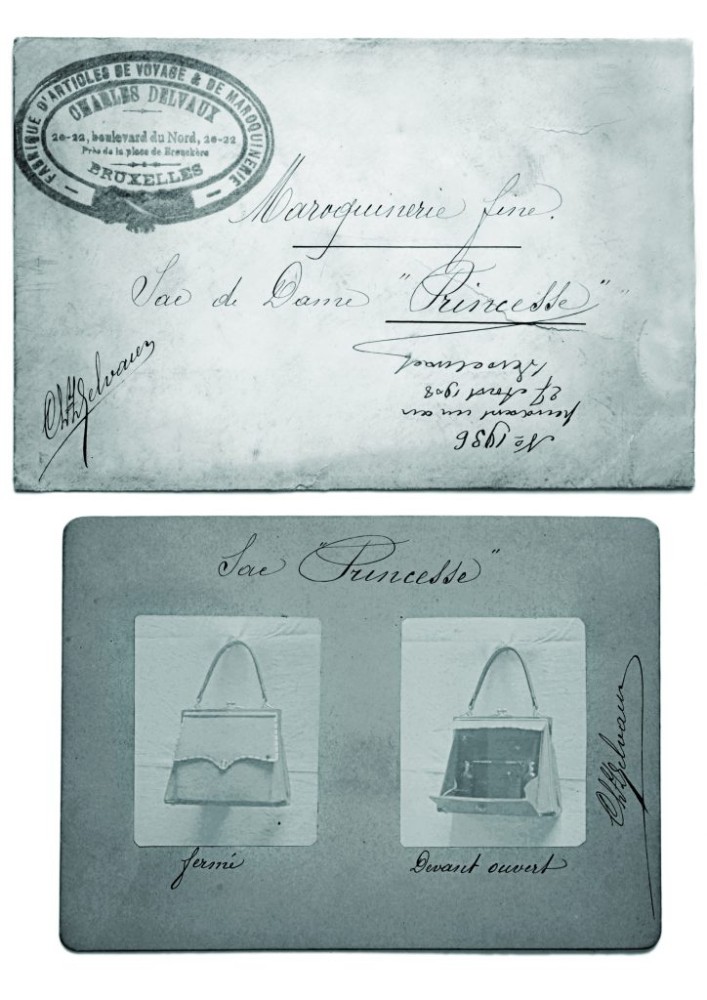 FABRIQUE D'ARTICLES DE VOYAGE & DE MAROQUINERIE
CHARLES DELVAUX
20-22, boulevard du Nord, 20-22
Près de la place de Brouckère
BRUXELLES
Maroquinerie fine.
Sac de Dame "Princesse"
Ch. Delvaux
No 1936
pendant un an
27 Août 1908
Sac "Princesse"
fermé
Devant ouvert
Ch. Delvaux